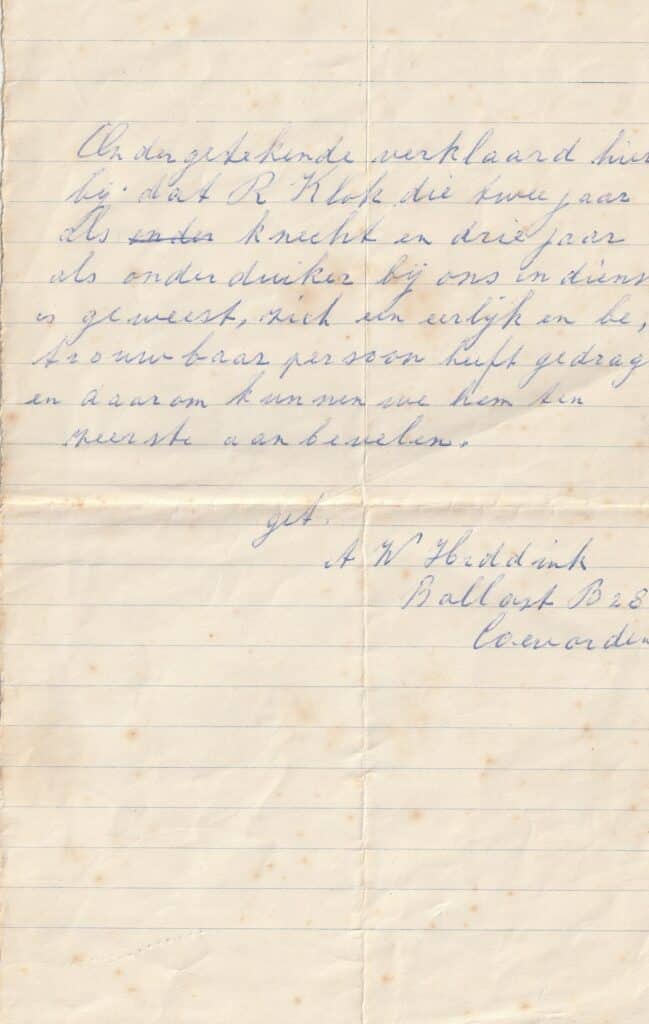 Ondergetekende verklaard hier
bij dat R Klok die twee jaar
als onder knecht en drie jaar
als onderduiker bij ons in dienst
is geweest, zich een eerlijk en be,
trouwbaar persoon heeft gedrag
en daarom kunnen we hem ten
zeerste aanbevelen.
get.
A W Heddink
Ballast B 28
Coevorden